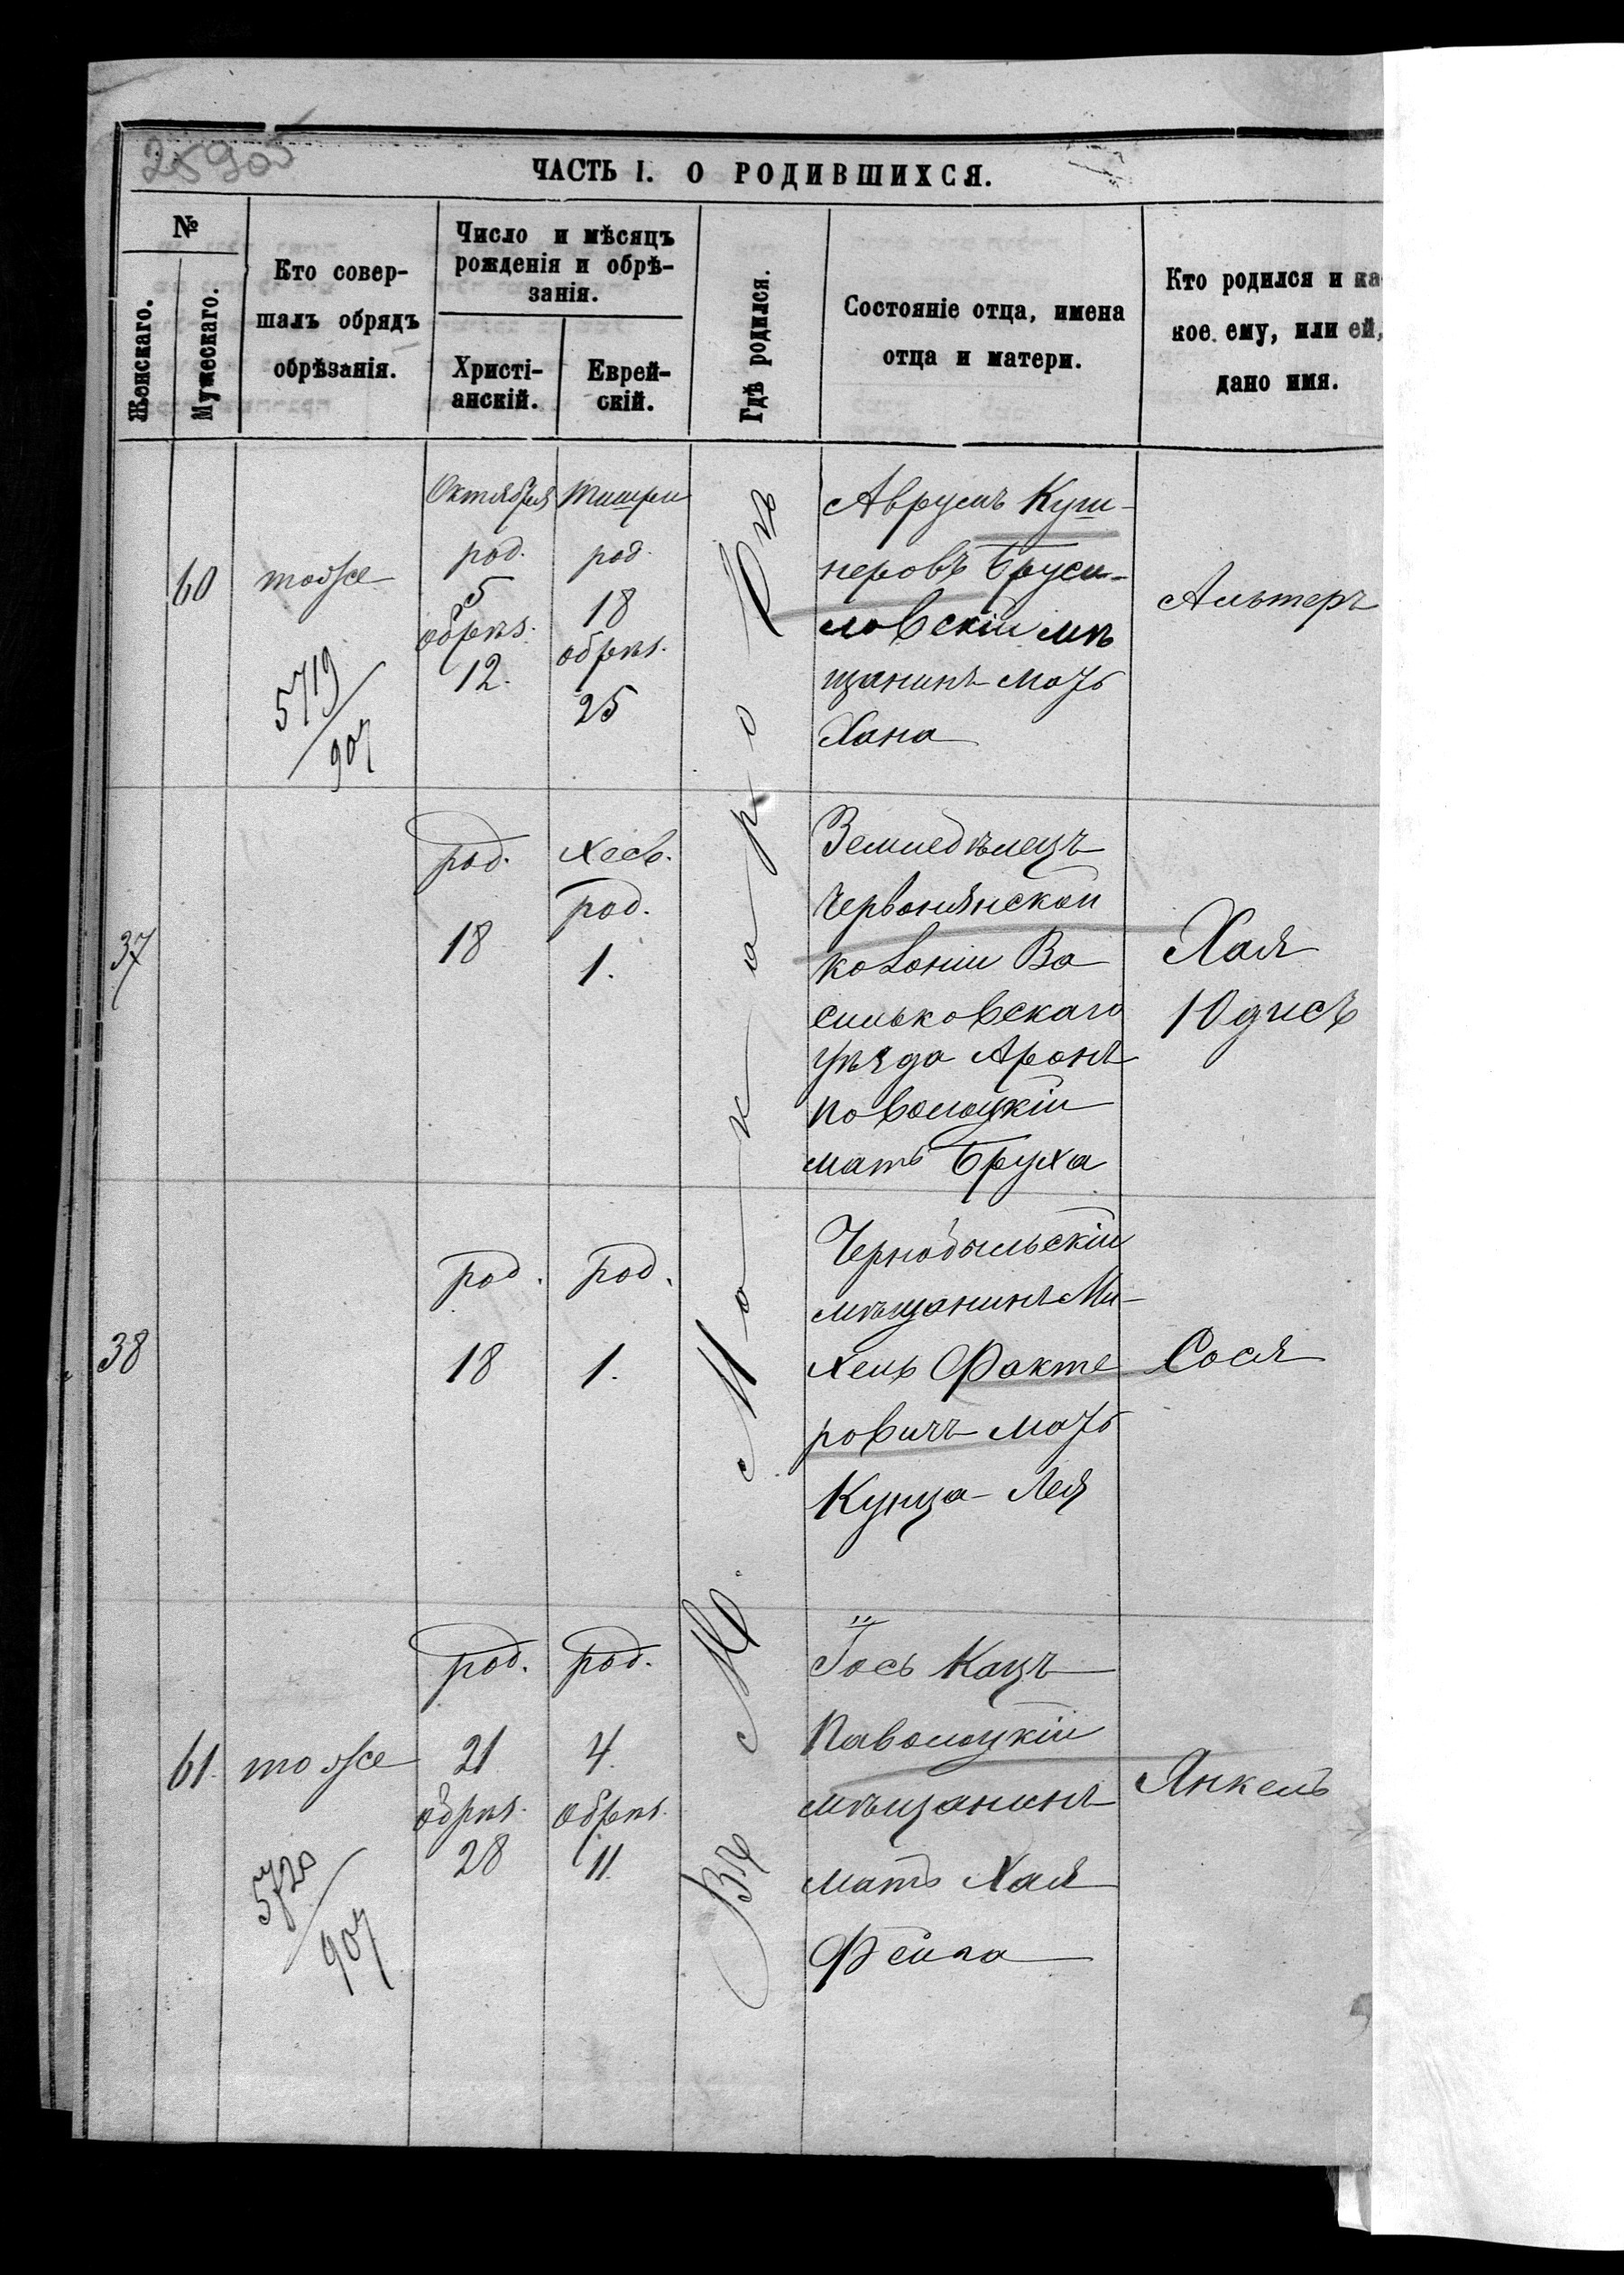 ЧАСТЬ I. О РОДИВШИХСЯ.
№
Женскаго.
Мужескаго.
Кто совер-
шалъ обрядъ
обрѣзанія.
Число и мѣсяцъ
рожденія и обрѣ-
занія.
Христі-
анскій.
Еврей-
скій.
Гдѣ родился.
Состояніе отца, имена
отца и матери.
Кто родился и ка
кое ему, или ей,
дано имя.
Въ М. Макаровѣ
60
тоже
5719/907
Октября
род.
5
обрѣз.
12.
Тишри
род.
18
обрѣз.
25
Аврумъ Куш-
неровъ Бруси-
ловскій мѣ
щанинъ мать
Хана
Альтеръ
37
род.
18
Хесв.
род.
1.
Земледѣлецъ
Червонянской
колоніи Ва
сильковскаго
уѣзда Аронъ
Поволоцкій
мать Бруха
Хая
Юдисъ
38
род.
18
род.
1.
Чернобыльскій
мѣщанинъ Ми-
хель Факте
ровичъ мать
Кунца-Лея
Сося
61.
тоже
5720/907
род.
21
обрѣз.
28
род.
4.
обрѣз.
11.
Іось Кацъ
Паволоцкій
мѣщанинъ
мать Хая
Фейга
Янкель